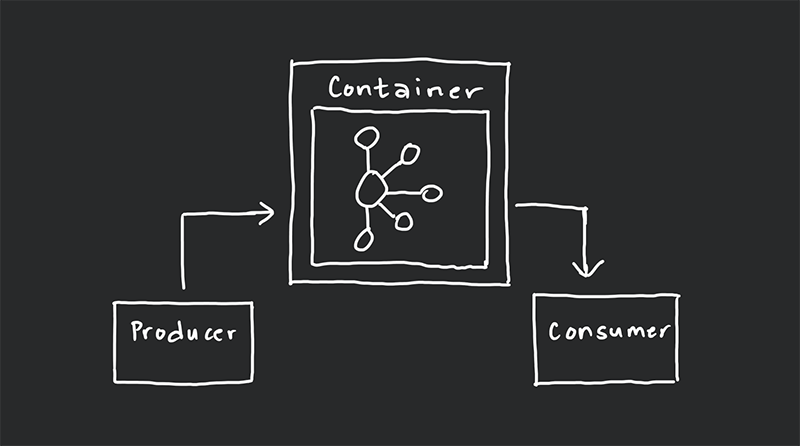 Container
Producer
Consumer